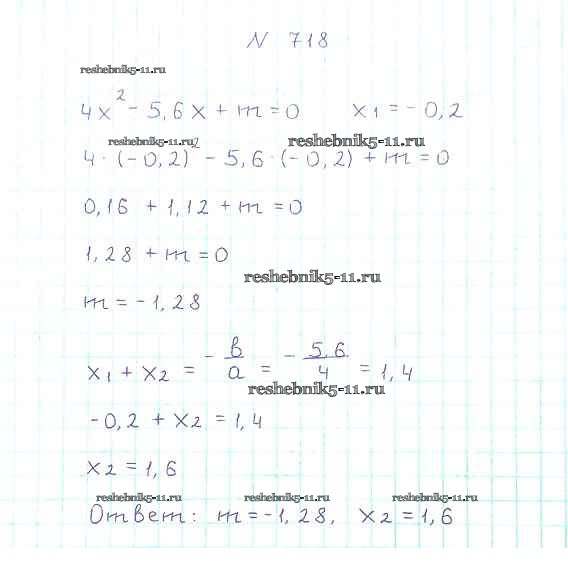 N 718
reshebnik5-11.ru
4x² - 5,6x + m = 0    x₁ = -0,2
reshebnik5-11.ru reshebnik5-11.ru
4·(-0,2)² - 5,6·(-0,2) + m = 0
0,16 + 1,12 + m = 0
1,28 + m = 0
reshebnik5-11.ru
m = -1,28
x₁ + x₂ = -в/a = -5,6/4 = 1,4
reshebnik5-11.ru
-0,2 + x₂ = 1,4
x₂ = 1,6
reshebnik5-11.ru reshebnik5-11.ru reshebnik5-11.ru
Ответ: m = -1,28, x₂ = 1,6